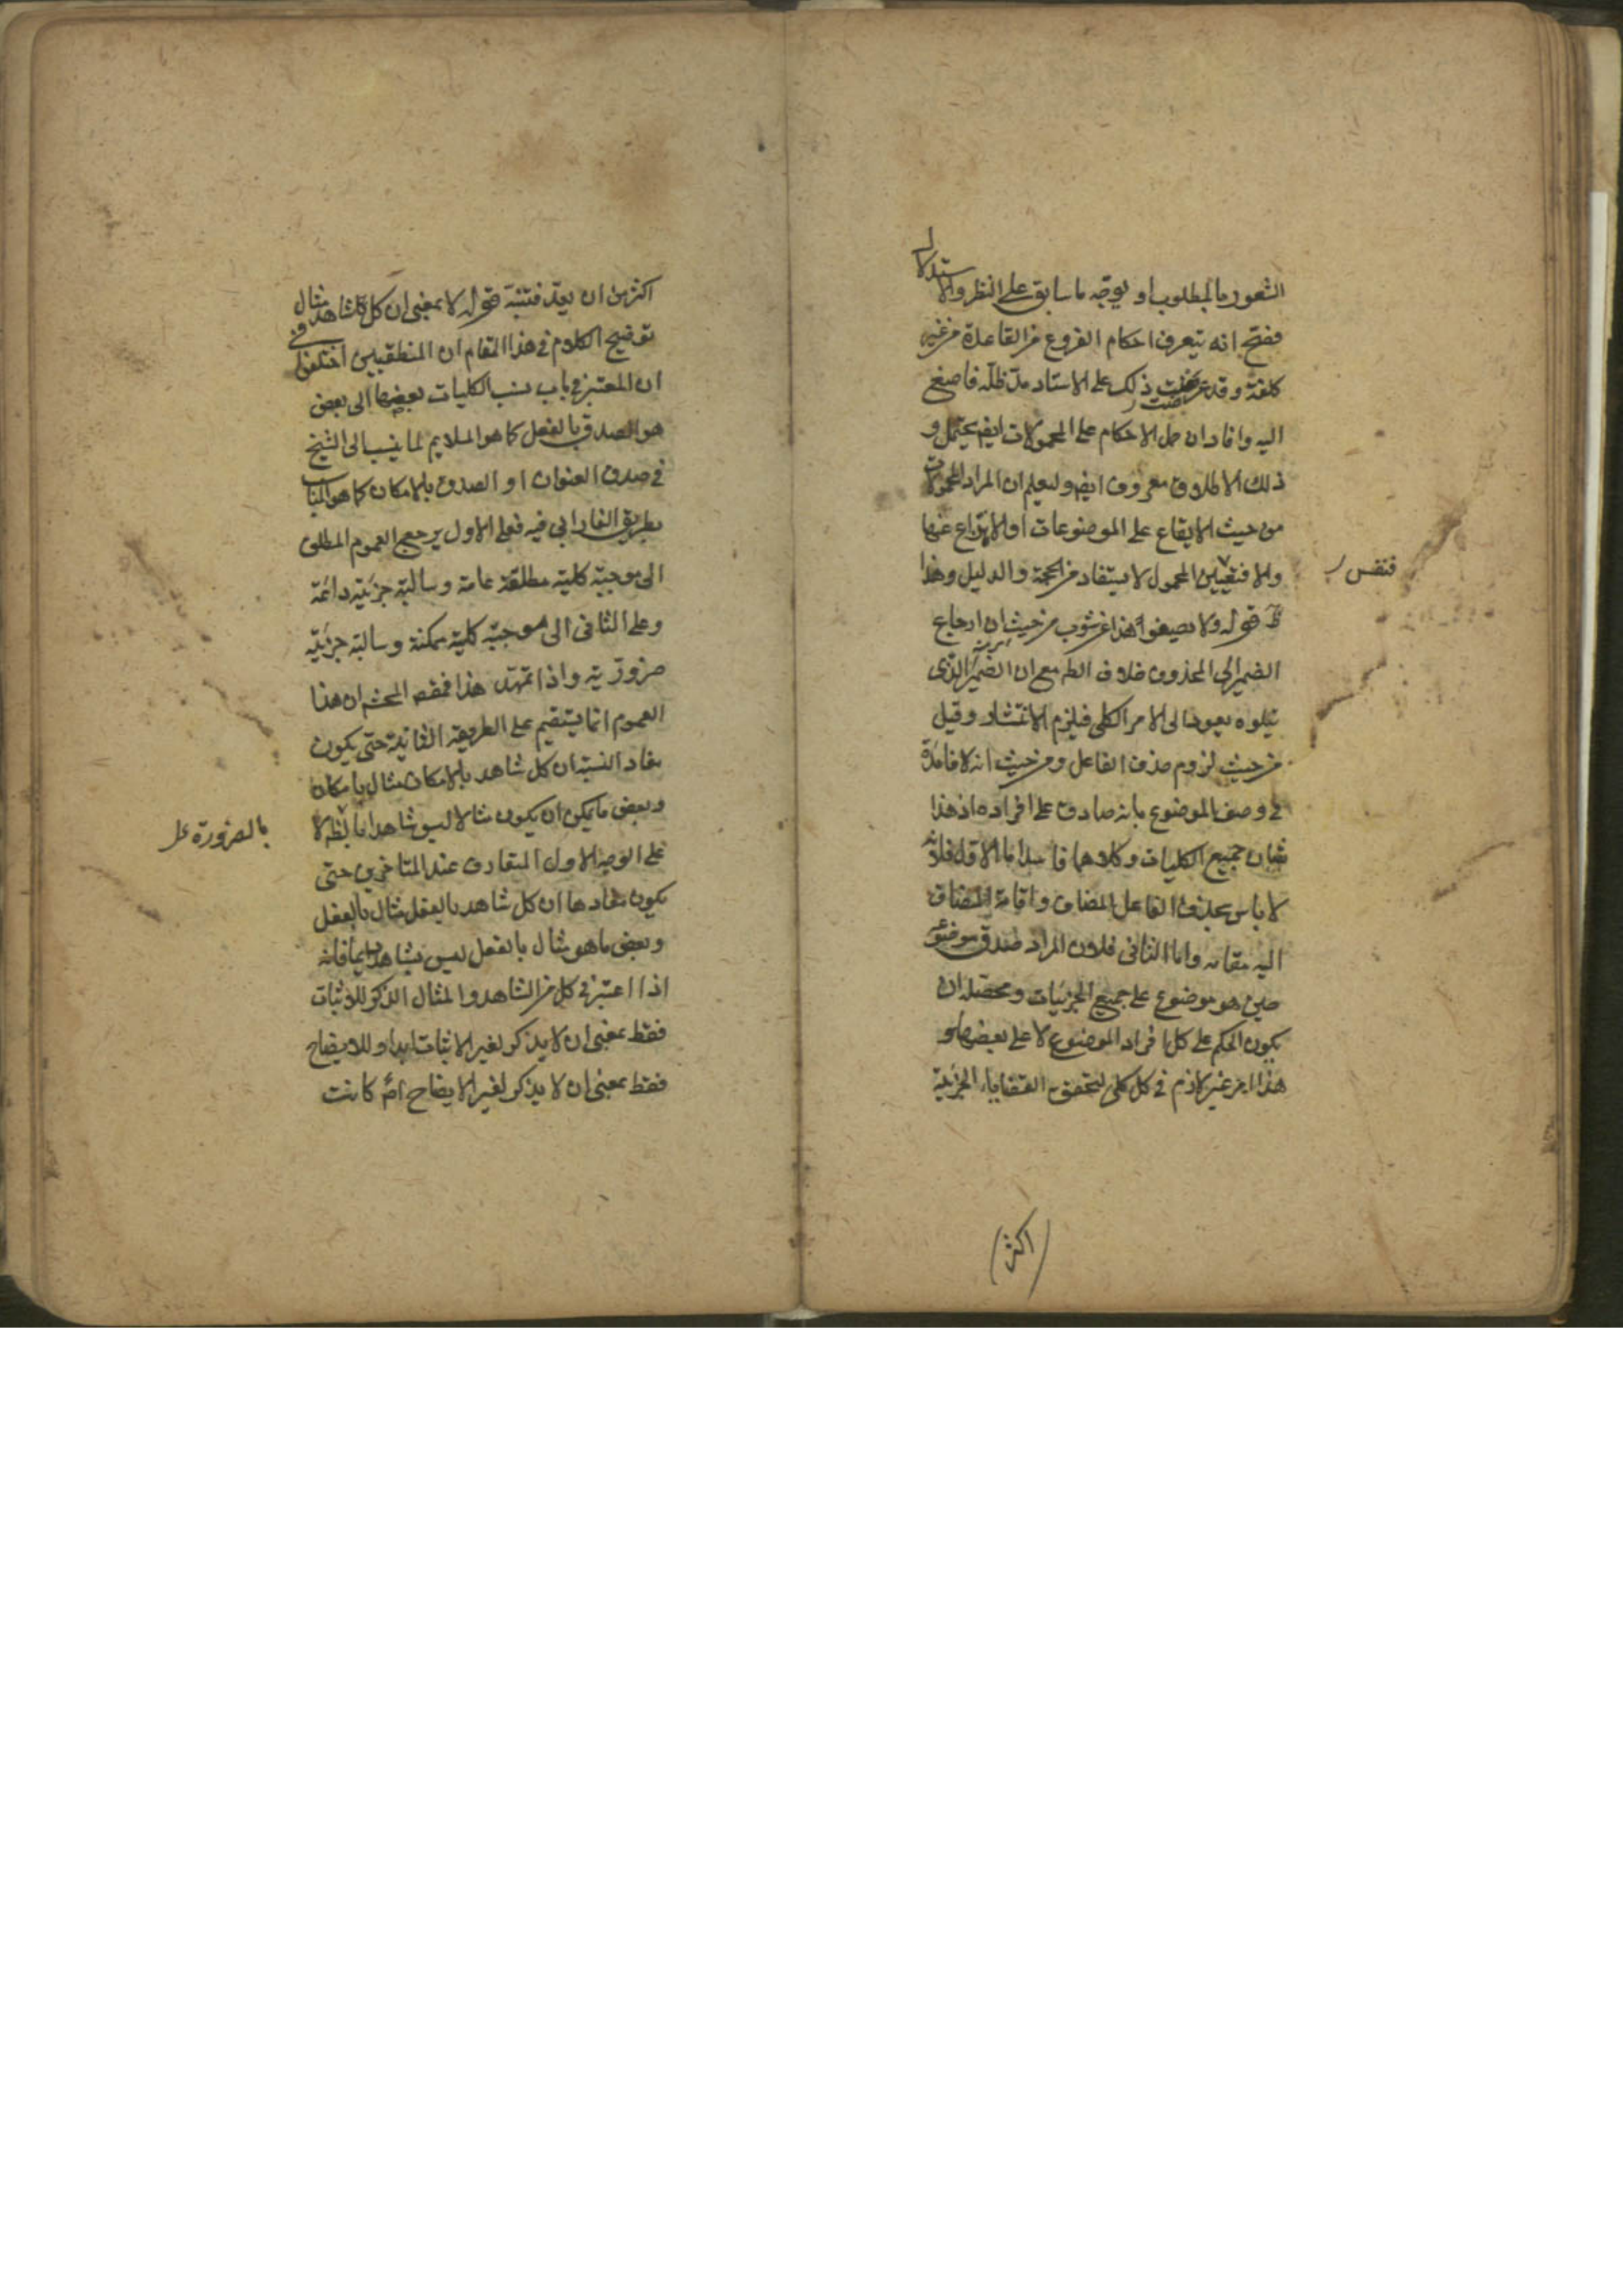 الشعور بالمطلوب او يوجه ما سابق على النظر والاستدلال
ففتح انه يتعرف احكام الفروع من القاعدة من غير
كلفة وقد عرضت ذلك على الاستاد مد ظله فاصغى
اليه وافاد ان حمل الاحكام على المحمولات ايضا يحتمل و
ذلك الاطلاق معروف ايضا وليعلم ان المراد المحمولات
من حيث الايقاع على الموضوعات او الانتزاع عنها
والا فتعيين المحمول لا يستفاد من الحجة والدليل وهذا
فنفس
ظ قوله ولا يصيغوا هذا غير مشوب من حيث ان ارجاع
الضمير الى المحذوف خلاف الظ مع ان الضمير الذى
يتلوه يعود الى الامر الكلى فيلزم الانتشار وقيل
من حيث لزوم حذف الفاعل ومن حيث انه لا فائدة
فى وصف الموضوع بانه صادق على افراده اذ هذا
شان جميع الكليات وكلاهما فاسد اما الاول فلانه
لا باس بحذف الفاعل المضاف واقامة المضاف
اليه مقامه واما الثانى فلان المراد صدق موضوعه
حين هو موضوع على جميع الجزئيات ومحصله ان
يكون الحكم على كل افراد الموضوع لا على بعضها و
هذا امر غير لازم فى كل كلى لتحقق القضايا الجزئية
اكثر
اكثر من ان يعد فتنبه قوله لا بمعنى ان كل شاهد مثال
توضيح الكلام فى هذا المقام ان المنطقيين اختلفوا فى
ان المعتبر فى باب نسب الكليات بعضها الى بعض
هو الصدق بالفعل كما هو الملايم لما ينسب الى الشيخ
فى صدق العنوان او الصدق بالامكان كما هو المناسب
بطريق الفارابى فيه فعلى الاول يرجع العموم المطلق
الى موجبة كلية مطلقة عامة وسالبة جزئية دائمة
وعلى الثانى الى موجبة كلية ممكنة وسالبة جزئية
ضرورية واذا تمهد هذا فمقصد المحشى ان هذا
العموم انما يستقيم على الطريقة الثانية حتى يكون
مفاد النسبة ان كل شاهد بالامكان مثال بامكان
وبعض ما يمكن ان يكون مثالا ليس شاهدا بالضرورة لا
بالضرورة
على الوجه الاول المتعارف عند المتاخرين حتى
يكون مفادها ان كل شاهد بالفعل مثال بالفعل
وبعض ما هو مثال بالفعل ليس بشاهد دايما فانه
اذا اعتبر فى كل من الشاهد والمثال الذكر للاثبات
فقط بمعنى ان لا يذكر لغير الاثبات ابدا وللايضاح
فقط بمعنى ان لا يذكر لغير الايضاح كانت